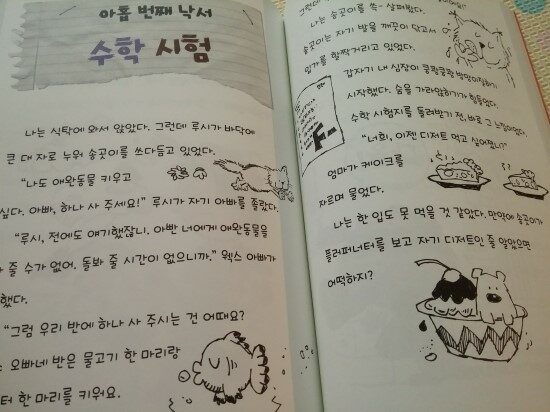 아홉 번째 낙서
수학 시험
나는 식탁에 와서 앉았다. 그런데 루시가 바닥에
큰 대 자로 누워 송곳이를 쓰다듬고 있었다.
"나도 애완동물 키우고
싶다. 아빠, 하나 사 주세요!" 루시가 자기 아빠를 졸랐다.
"루시, 전에도 얘기했잖니. 아빤 너에게 애완동물을
줄 수가 없어. 돌봐 줄 시간이 없으니까." 웩스 아빠가
했다.
"그럼 우리 반에 하나 사 주시는 건 어때요?
오빠네 반은 물고기 한 마리랑
터 한 마리를 키워요.
나는 송곳이를 쓱 살펴봤다.
송곳이는 자기 발을 깨끗이 닦고서
입가를 할짝거리고 있었다.
갑자기 내 심장이 쿵쾅쿵쾅 방망이질하기
시작했다. 숨을 가라앉히기가 힘들었다.
수학 시험지를 돌려받기 전, 바로 그 느낌이었다.
"너희, 이젠 디저트 먹고 싶어졌니?"
엄마가 케이크를
자르며 물었다.
나는 한 입도 못 먹을 것 같았다. 만약에 송곳이가
플러퍼너터를 보고 자기 디저트인 줄 알았으면
어떡하지?
F-